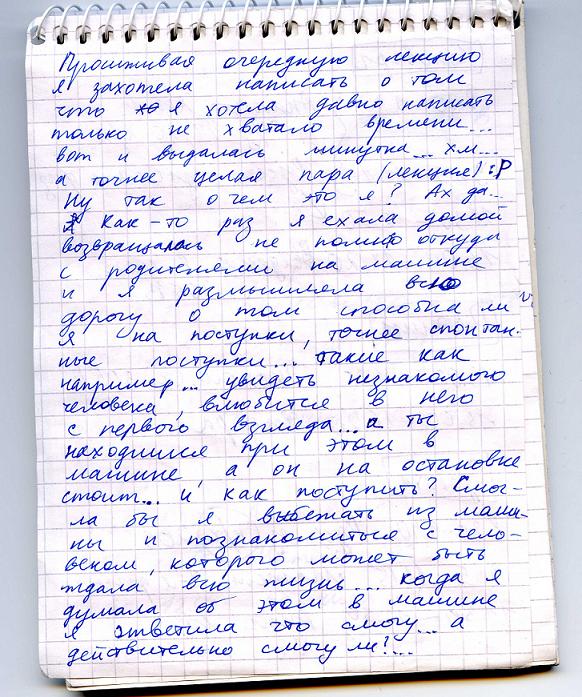 Просиживая очередную лекцию
я захотела написать о том
что я хотела давно написать
только не хватало времени...
вот и выдалась минутка... хм...
а точнее целая пара (лекция) :P
Ну так о чем это я? Ах да...
Как-то раз я ехала домой
возвращалась не помню откуда
с родителями на машине
и я размышляла всю
дорогу о том способна ли
я на поступки, точнее спонтан-
ные поступки... такие как
например... увидеть незнакомого
человека, влюбится в него
с первого взгляда... а ты
находишся при этом в
машине, а он на остановке
стоит... и как поступить? Смог-
ла бы я выбежать из маши-
ны и познакомиться с чело-
веком, которого может быть
ждала всю жизнь... когда я
думала об этом в машине
я ответила что смогу... а
действительно смогу ли?!...